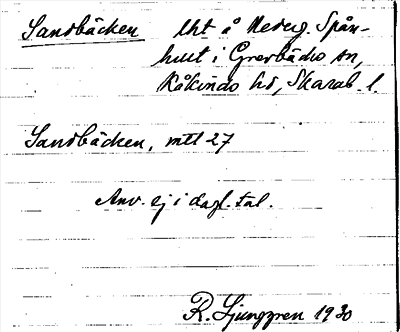 Sandbäcken lht å Nedreg. Spån-
hult i Grevbäcks sn,
Kåkinds hd, Skarab. l.
Sandbäcken, mtl 27
Anv. ej i dagl. tal.
R. Ljunggren 1930